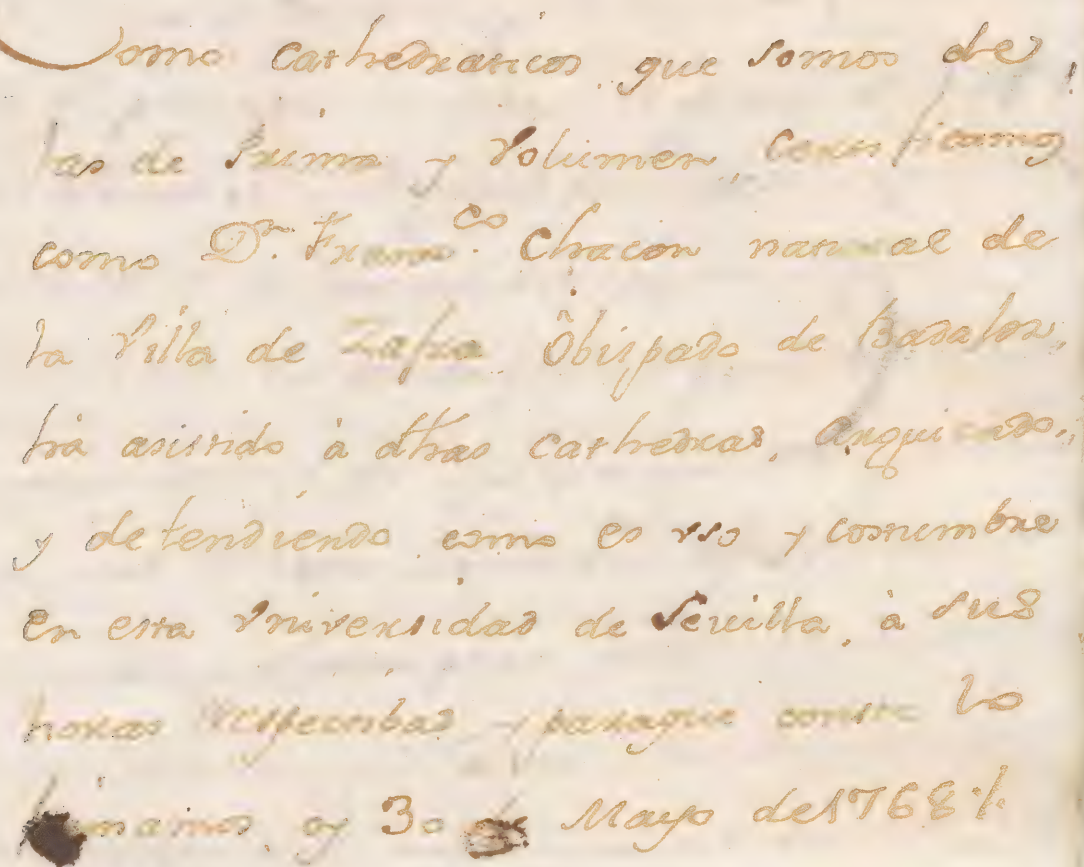 Como Cathedraticos que somos de
las de Prima y Volumen, Certificamos
como Dn. Franco. Chacon natural de
la Villa de Zafra Obispado de Badaxoz,
hà asistido à dhas Cathedras, arguiendo,
y defendiendo como es vso y costumbre
en esta Vniversidad de Sevilla, à sus
horas respectibas y paraque conste lo
firmamos oy 30 de Mayo de 1768